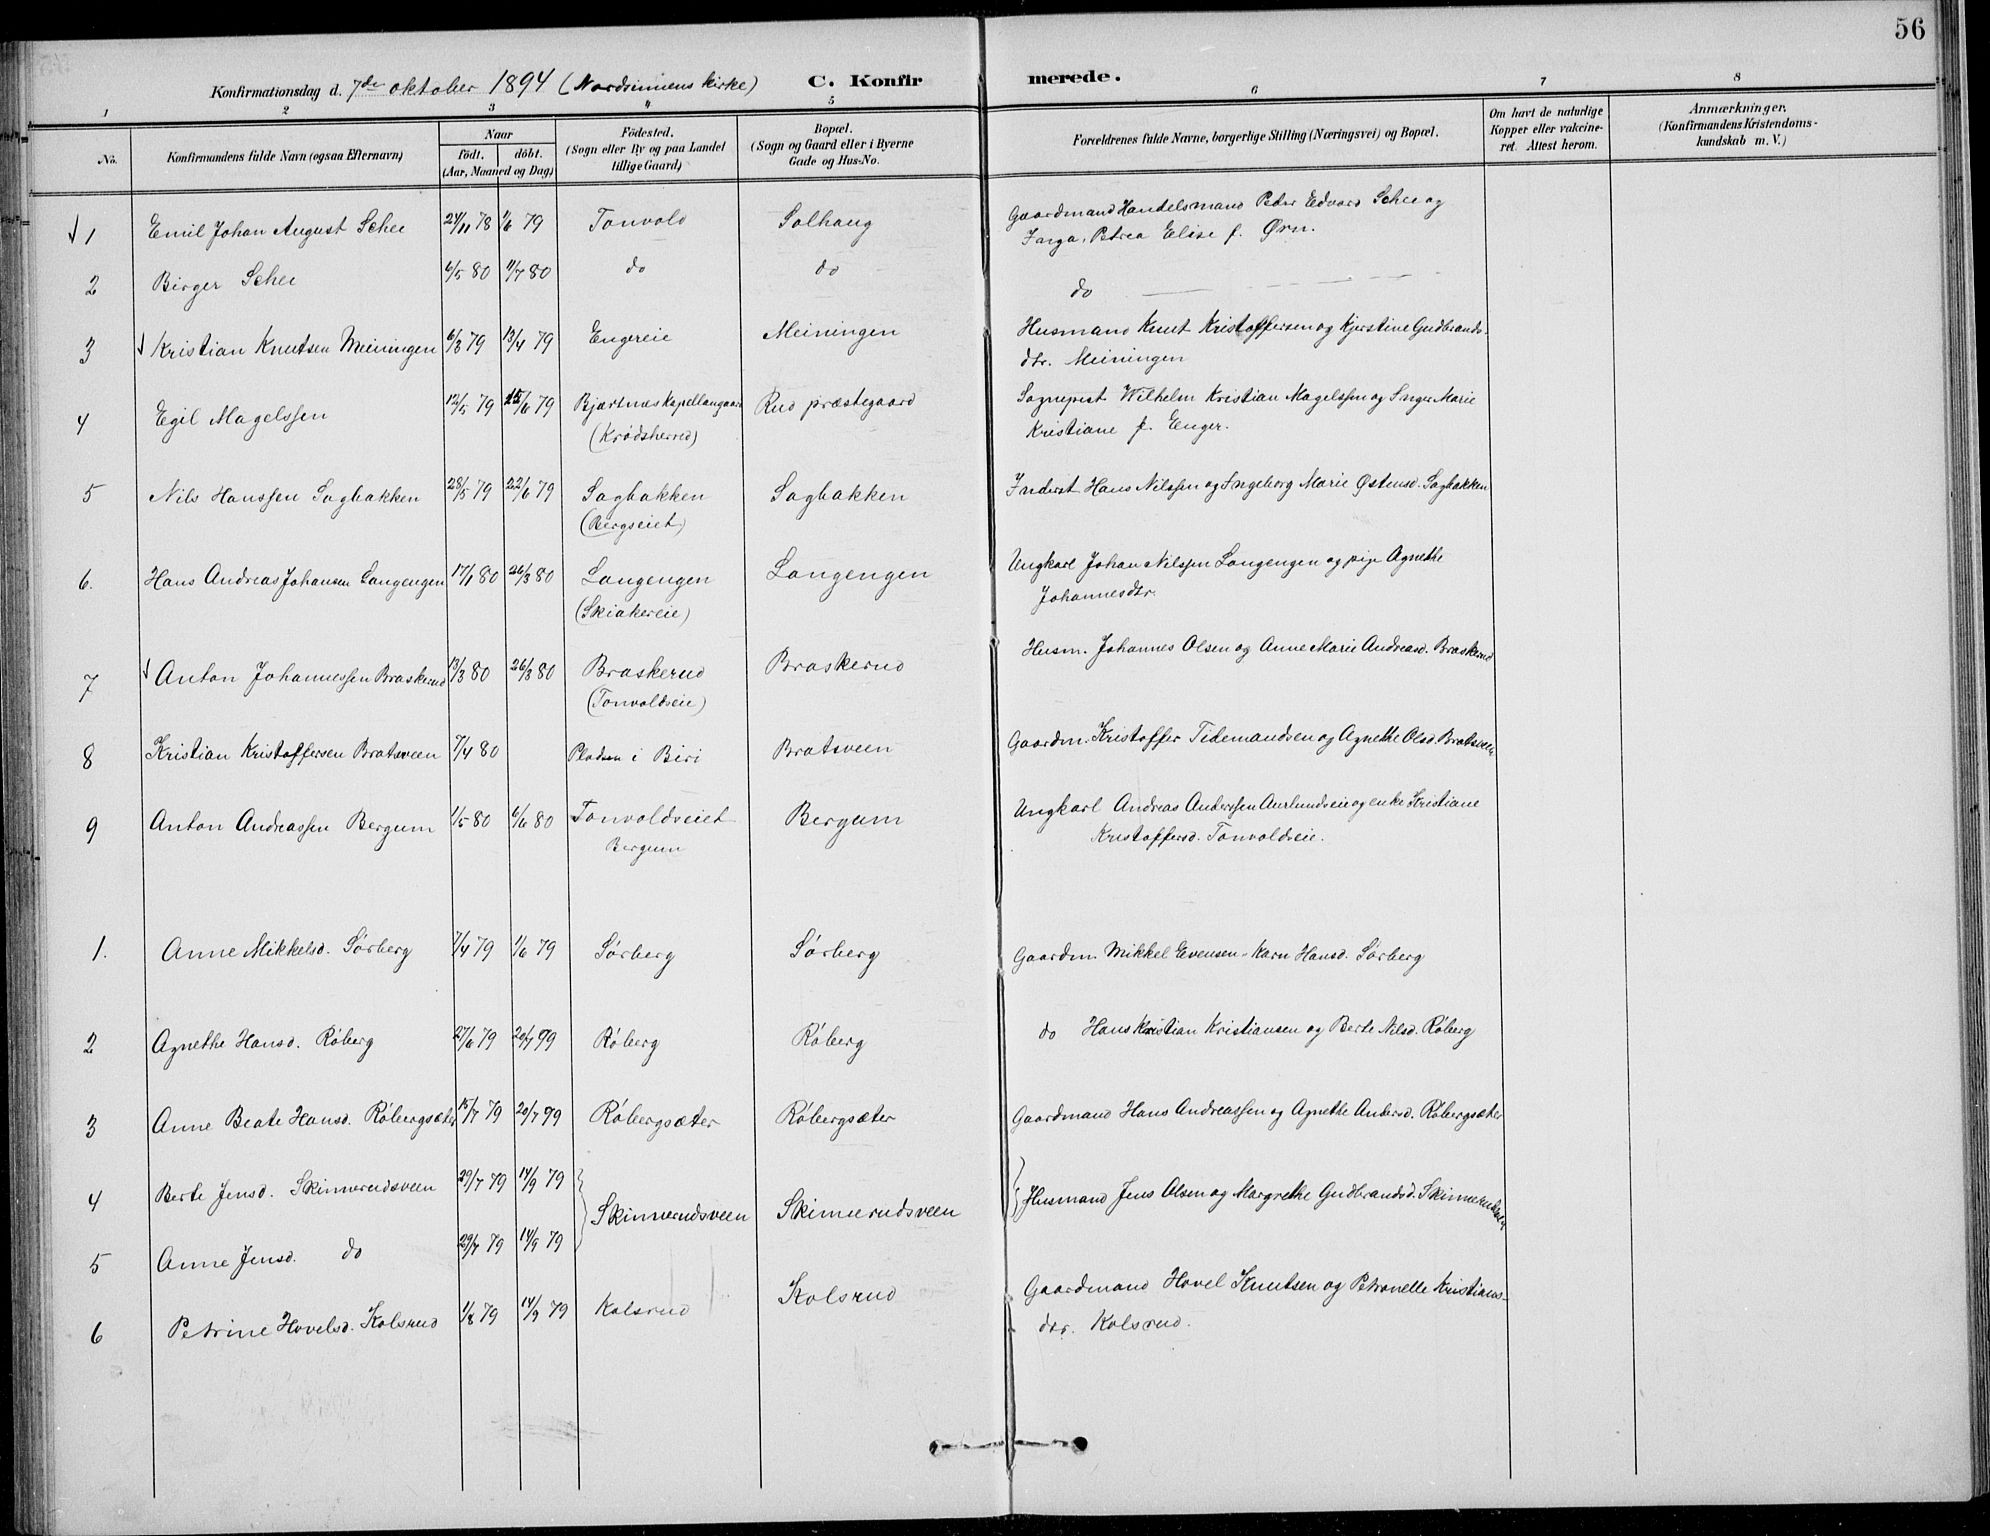 56
Konfirmationsdag d. 7de oktober 1894 (Nordsinnens kirke) C. Konfirmerede.
1 2 3 4 5 6 7 8
No. Konfirmandens fulde Navn (ogsaa Efternavn) Naar födt. döbt. (Aar, Maaned og Dag) Födested. (Sogn eller By og paa Landet tillige Gaard) Bopæl. (Sogn og Gaard eller i Byerne Gade og Hus-No. Forældrenes fulde Navne, borgerlige Stilling (Næringsvei) og Bopæl. Om havt de naturlige Kopper eller vakcineret. Attest herom. Anmærkninger. (Konfirmandens Kristendomskundskab m. V.)
1 Emil Johan August Schee 24/11 78 1/6 79 Tonvold Solhaug Gaardmand Handelsmand Peder Edvard Schee og
Petrea Elise f. Ørn.
2 Birger Schee 6/5 80 11/7 80 do do do
3 Kristian Knutsen Meiningen 6/3 79 13/4 79 Engereie Meiningen Husmand Knut Kristoffersen og Kjerstine Gudbrands-
dtr. Meiningen
4 Egil Magelssen 12/5 79 15/6 79 Bjærtnæs Kapellangaard Rud præstegaard Sognepest Wilhelm Kristian Magelssen og Inger Marie
(Krødsherred) Kristiane f. Enger.
5 Nils Hanssen Sagbakken 28/5 79 22/6 79 Sagbakken Sagbakken Inderst Hans Nilssen og Ingeborg Marie Østensd. Sagbakken
(Bergseiet)
6. Hans Andreas Johansen Langengen 17/1 80 26/3 80 Langengen Langengen Ungkarl Johan Nilssen Langengen og pige Agnethe
(Skiakereie) Johannesdtr.
7 Anton Johannessen Braskerud 13/3 80 26/3 80 Braskerud Braskerud Husm. Johannes Olsen og Anne Marie Andreasd. Braskerud
(Tonvoldseie)
8 Kristian Kristoffersen Bratsveen 7/4 80 Pladsen i Biri Bratsveen Gaardm. Kristoffer Tidemandsen og Agnethe Olsd. Bratsveen
9 Anton Andreassen Bergum 1/5 80 6/6 80 Tonvoldseiet Bergum Ungkarl Andreas Anderssen Aurlundseie og enke Kristiane
Bergum Kristoffersd. Tonvoldseie.
1. Anne Mikkelsd. Sørberg 7/4 79 1/6 79 Sørberg Sørberg Gaardm. Mikkel Evensen - Karn Hansd. Sørberg
2 Agnethe Hansd. Røberg 27/6 79 20/7 79 Røberg Røberg do Hans Kristian Kristiansen og Berte Nilsd. Røberg
3 Anne Beate Hansd. Røbergsæter 15/7 79 20/7 79 Røbergsæter Røbergsæter Gaardmand Hans Andreassen og Agnethe Andersd. Røbergsæter
4 Berte Jensd. Skinnerudsveen 29/7 79 14/9 79 Skinnerudsveen Skinnerudsveen Husmand Jens Olsen og Margrethe Gudbrandsd. Skinnerudsveen
5 Anne Jensd. do 29/7 79 14/9 79
6 Petrine Hovelsd. Kolsrud 1/8 79 14/9 79 Kolsrud Kolsrud Gaardmand Hovel Knutsen og Petronelle Kristians-
dtr. Kolsrud.